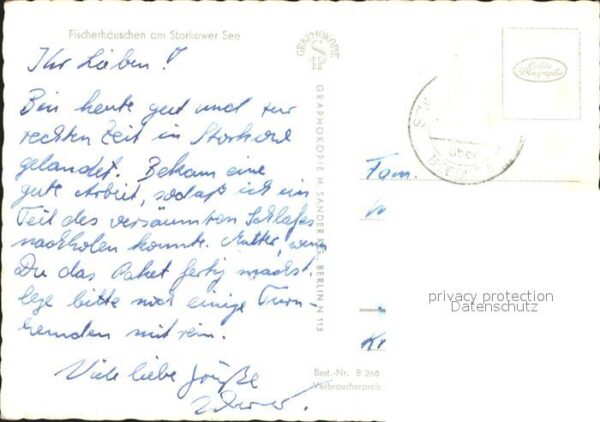 Fischerhäuschen am Storkower See
Ihr Lieben!
Bin heute gut und zur
rechten Zeit in Storkow
gelandet. Bekam eine
gute Arbeit, sodaß ich ein
Teil des versäumten Schlafes
nachholen konnte. Mutter, wenn
Du das Paket fertig machst
lege bitte noch einige Turn-
hemden mit rein.
Viele liebe Grüße
GRAPHOKOPIE
GRAPHOKOPIE H. SANDER KG. BERLIN N 113
Best.-Nr. B 260
Verbraucherpreis
Echte
Photographie
Fam.
privacy protection
Datenschutz